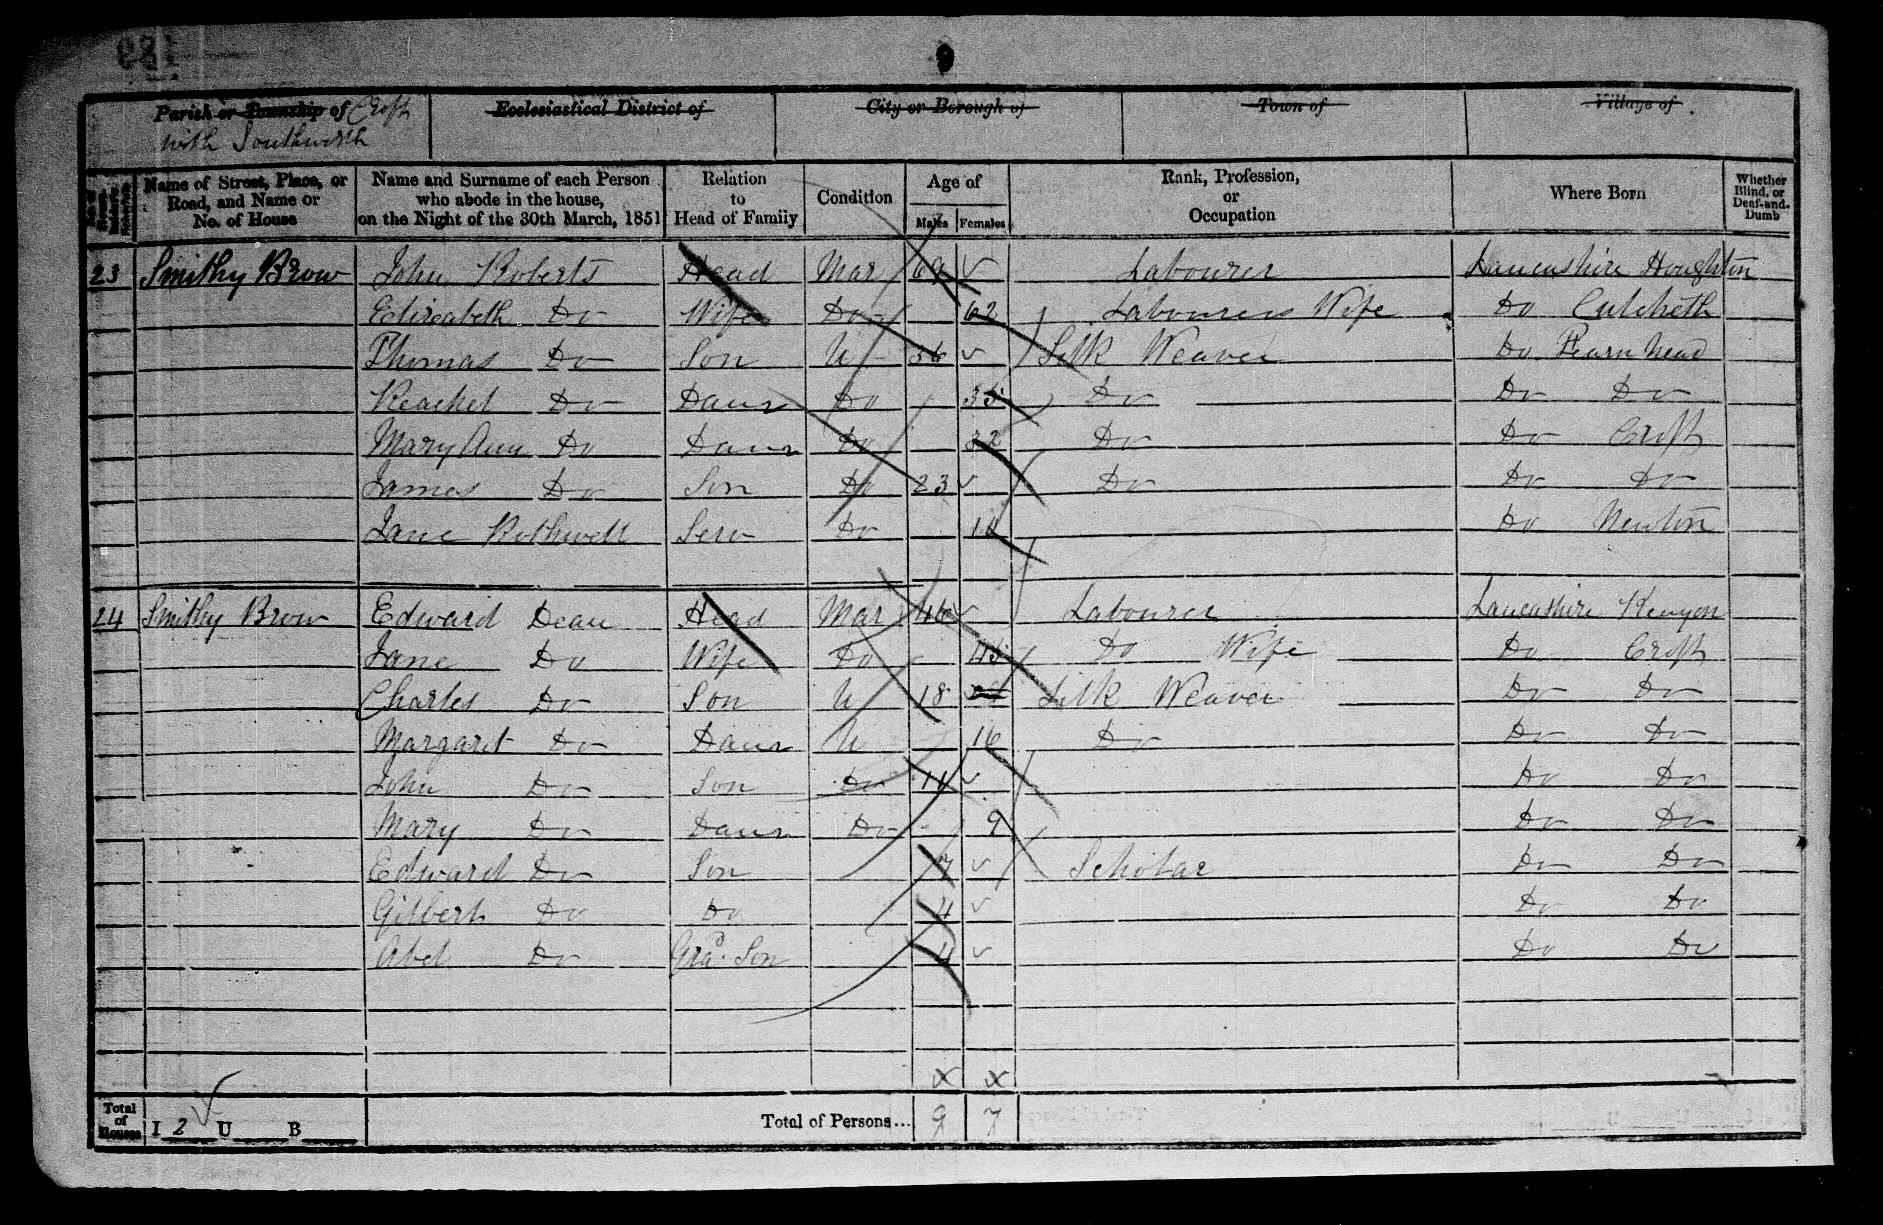 9
Parish or Township of Croft Ecclesiastical District of City or Borough of Town of Village of
with Southworth
Name of Street, Place, or Road, and Name or No. of House Name and Surname of each Person who abode in the house, on the Night of the 30th March, 1851 Relation to Head of Family Condition Age of Males Females Rank, Profession, or Occupation Where Born Whether Blind, or Deaf-and-Dumb
23 Smithy Brow John Roberts Head Mar 69 Labourer Lancashire Houghton
Elizabeth Do Wife Do 62 Labourers Wife Do Culcheth
Thomas Do Son U 36 Silk Weaver Do
Reachel Do Daur Do 35 Do Do Do
Mary Ann Do Daur Do 32 Do Do Croft
James Do Son Do 23 Do Do Do
Jane Rothwell Serv Do Do Newton
24 Smithy Brow Edward Dean Head Mar 46 Labourer Lancashire Kenyon
Jane Do Wife Do 45 Do Wife Do Croft
Charles Do Son U 18 Silk Weaver Do Do
Margaret Do Daur U 16 Do Do Do
John Do Son Do 11 Do Do
Mary Do Daur Do 9 Do Do
Edward Do Son 7 Scholar Do Do
Gilbert Do Do 4 Do Do
Abel Do Gra^d. Son 4 Do Do
Total of Houses I 2 U B Total of Persons... 9 7